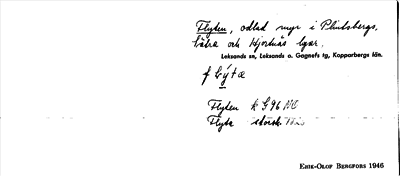 Flyten, odlad myr i Plintsbergs,
Sätra och Hjortnäs byar.
Leksands sn, Leksands o. Gagnefs tg, Kopparbergs län.
Flyten k G96 NO
Flyta storsk 1820
ERIK-OLOF BERGFORS 1946